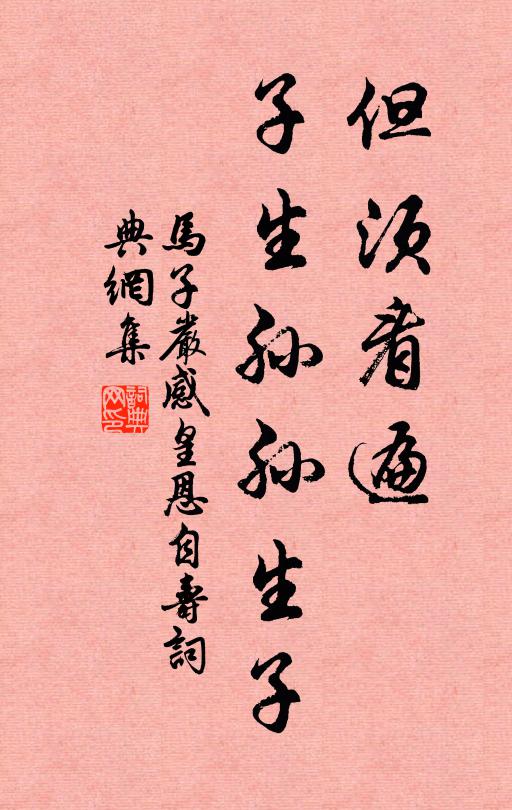 但须看遍
子生孙孙生子
馬子嚴感皇恩自壽詞
典網集
詞典網印